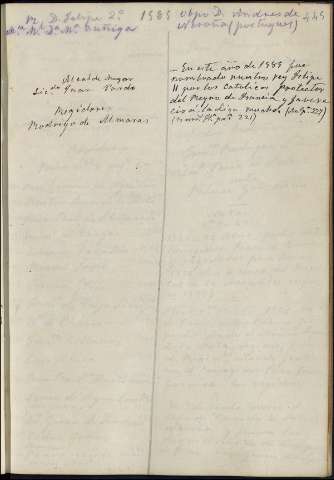 R. D. Felipe 2º 1585 Obpo D. Andres de
Noroña (portugues) 445
Mº Zuñiga
Alcalde mayor
Licdo Juan Pardo
Regidores
Rodrigo de Almaras
— En este año de 1585 fue
nombrado nuestro rey Felipe
II por los catolicos protector
del Reyno de Francia y favore
ció á la liga mucho